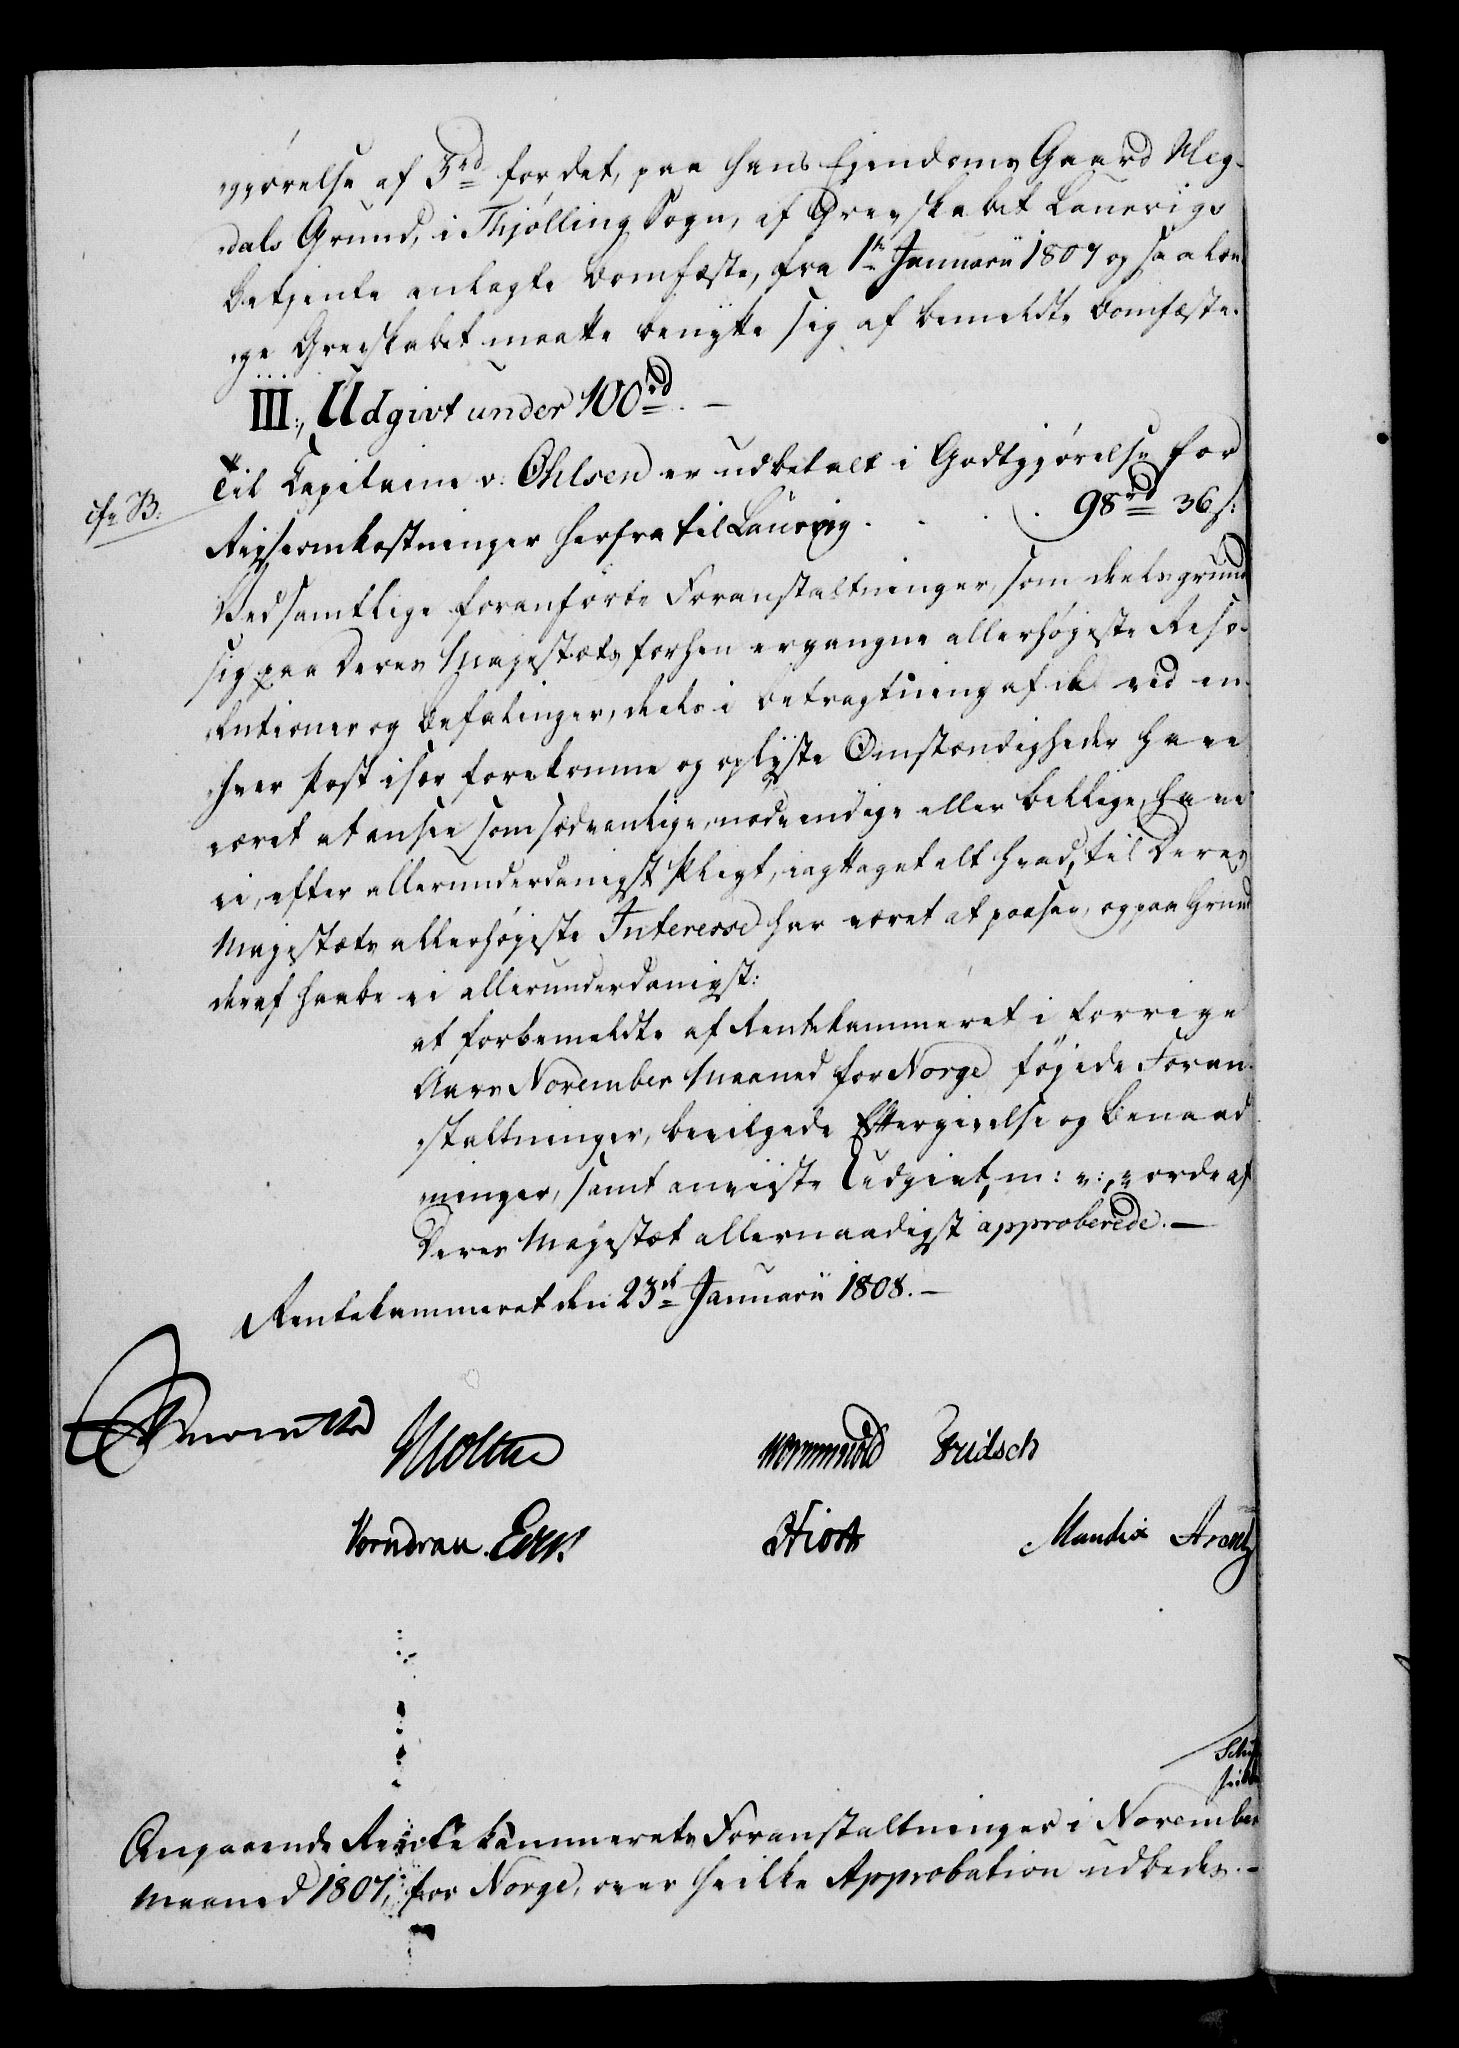 gjørelse af 3 rd for det, paa hans Ejendoms Gaard Meg-
dals Grund, i Thjølling Sogn, af Grevskabet Laurvigs
Betjente anlagte Bomfæste, fra 1te Januarii 1807 og saalæn-
ge Grevskabet maatte benytte sig af bemeldte Bomfæste.
III., Udgivt under 100 rd. —
cfr B.
Til Capitaine v: Ohlsen er udbetalt i Godtgjørelse for
Rejseomkostninger herfra til Laurvig . . . . 98 rd 36 s:
Ved samtlige foranførte Foranstaltninger, som deels grunde
sig paa Deres Majestæts forhen ergangne allerhøjeste Reso-
lutioner og Befalinger, deels i Betragtning af de ved en-
hver Post især forekomne og oplyste Omstændigheder have
været at ansee som sædvanlige, nødvendige eller billige, have
vi, efter allerunderdanigst Pligt, iagttaget alt hvad, til Deres
Majestæts allerhøjeste Interesse har været at paasee, og paa Grund
deraf haabe vi allerunderdanigst:
at forbemeldte af Rentekammeret i forrige
Aars November Maaned for Norge føjede Foran-
staltninger, bevilgede Eftergivelse og Benaad-
ninger, samt anviiste Udgivt, m: v:, vorde af
Deres Majestæt allernaadigst approberede. —
Rentekammeret den 23de Januarii 1808. —
Moltke Wormskiold Fridsch
Vorndran. Evers. Hiort Mandix Arentz
Angaaende Rentekammerets Foranstaltninger i November
Maaned 1807, for Norge, over hvilke Approbation udbedes. —